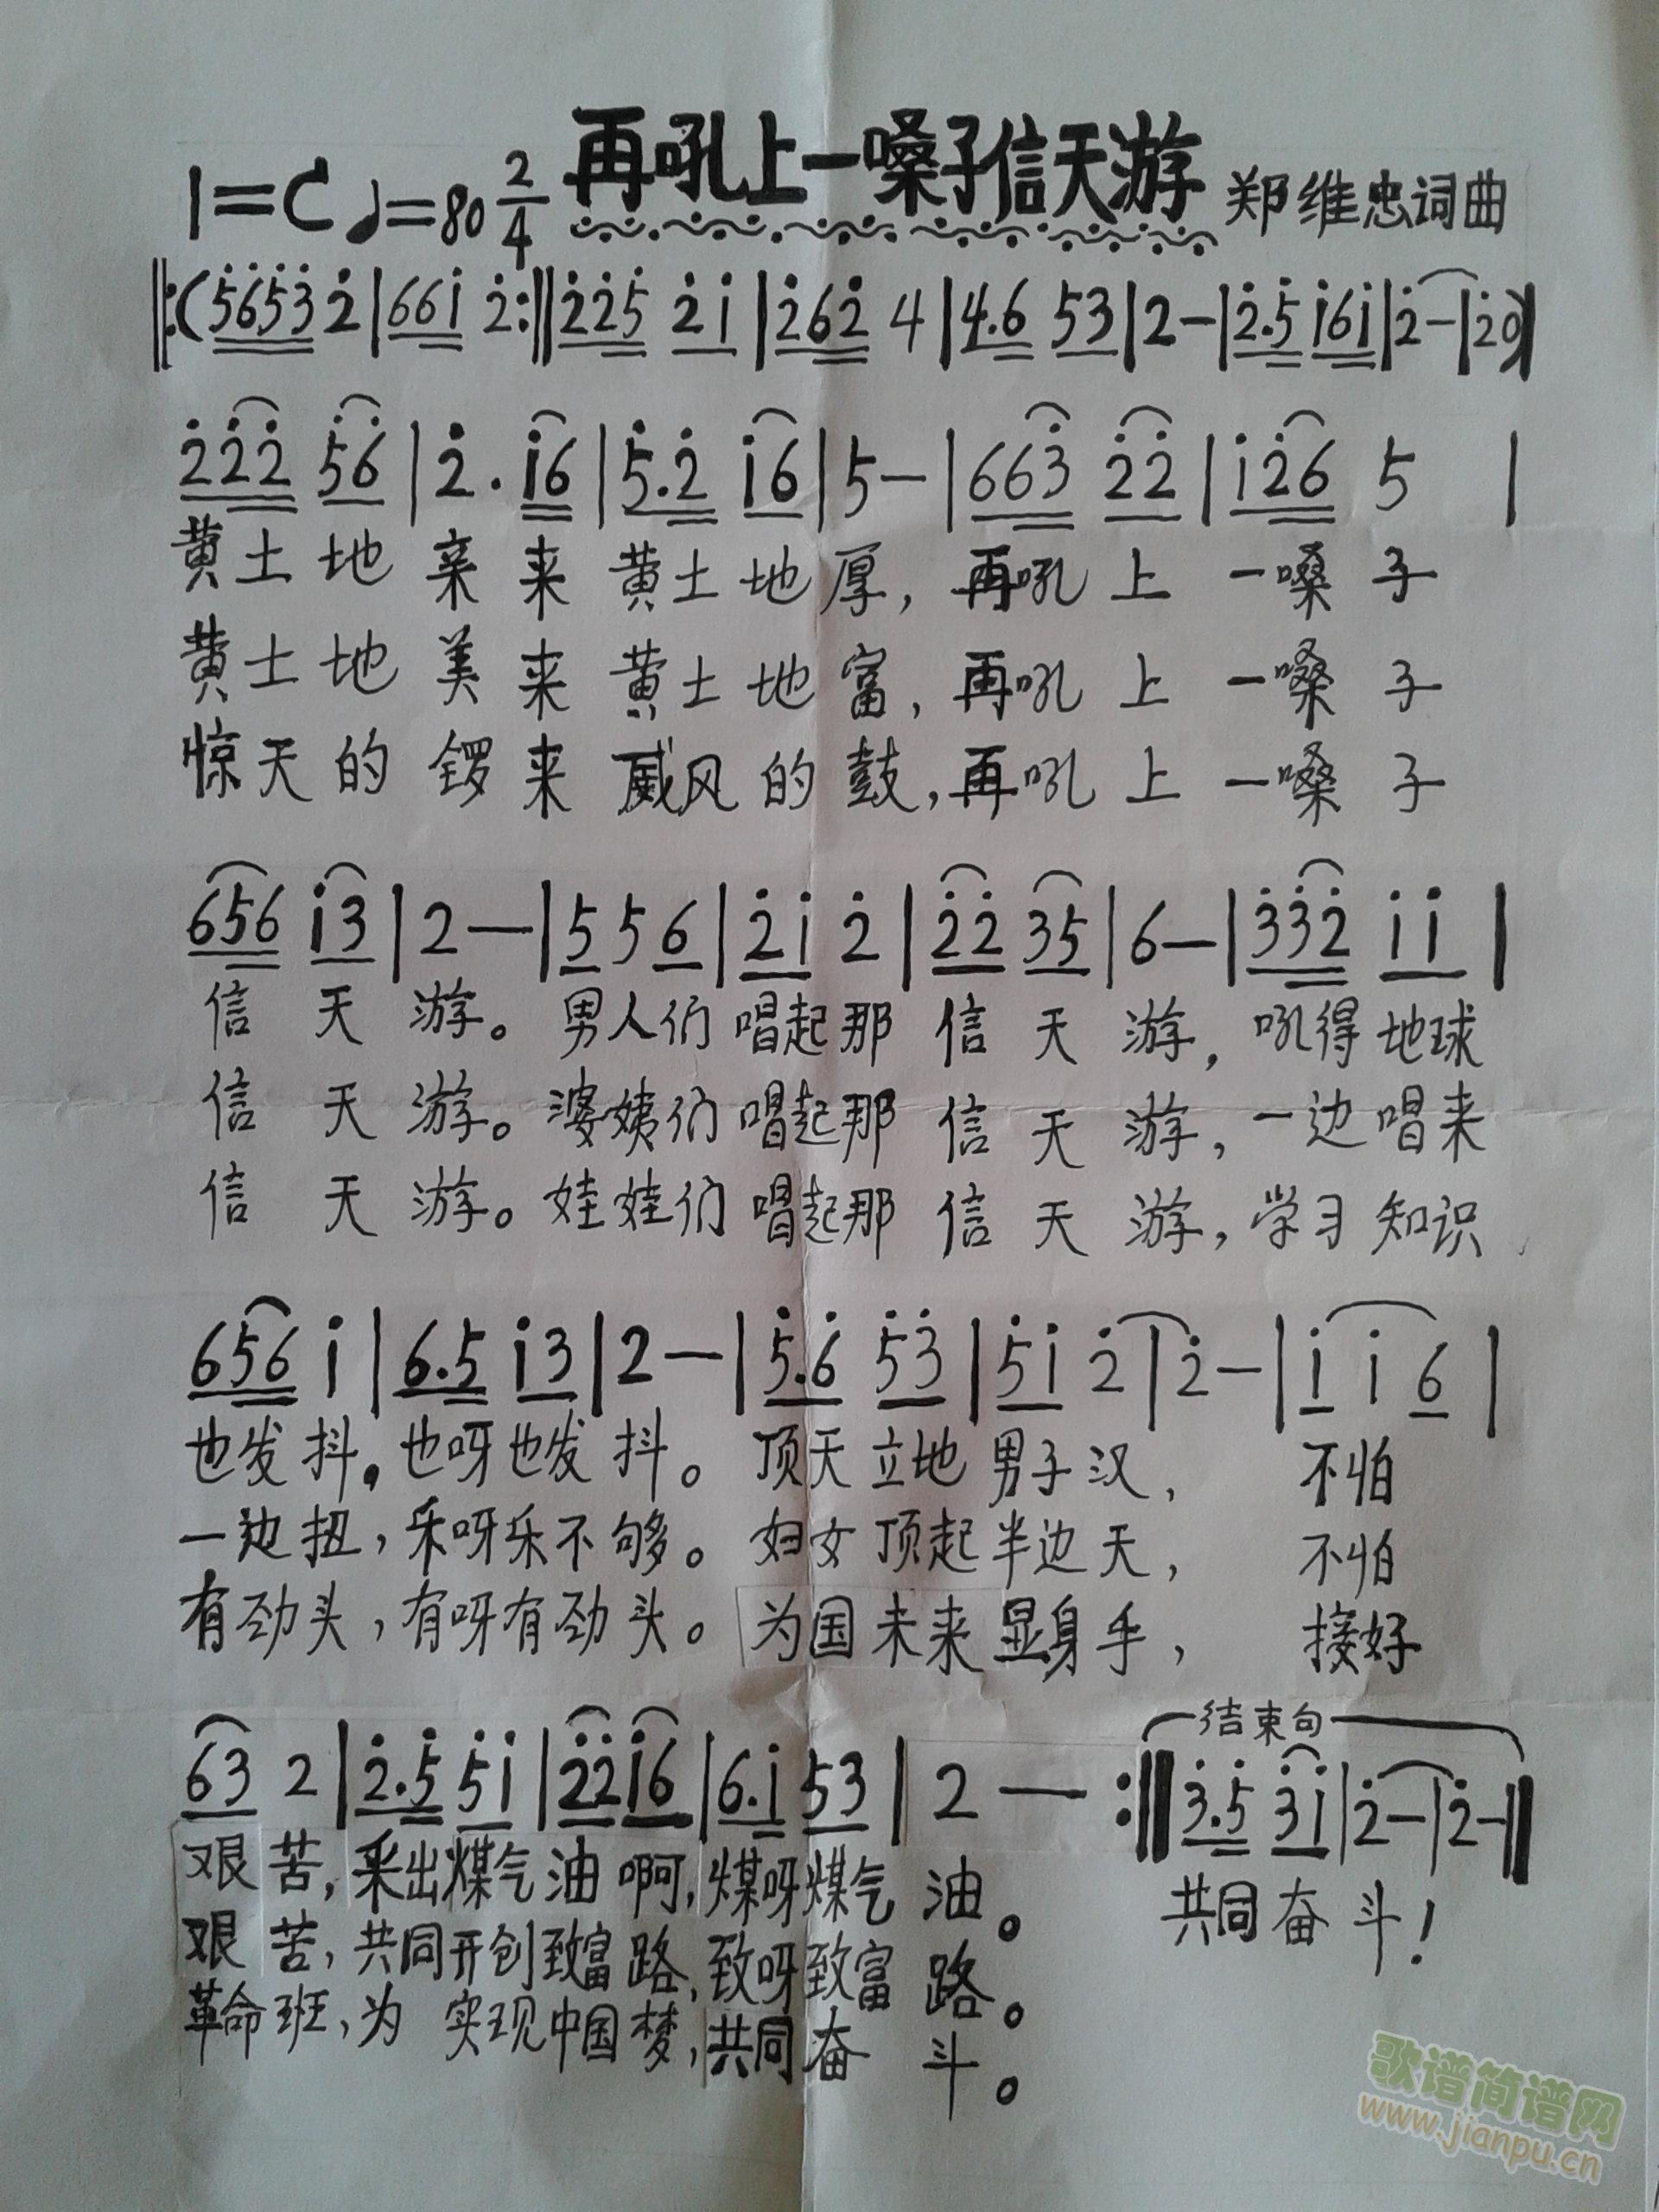 再吼上一嗓子信天游
1=C ♩=80 2/4 郑维忠词曲
‖:(5̇6̇5̇3̇ 2̇|661̇ 2̇:‖2̇2̇5̇ 2̇1̇|2̇62̇ 4|4.6 53|2-|2̇.5̇ 1̇61̇|2̇-|2̇0)|
2̇2̇2̇ 5̇6̇|2̇.1̇6|5̇.2̇ 1̇6|5-|663̇ 2̇2̇|1̇2̇6 5|
黄土地亲来黄土地厚,再吼上一嗓子
黄土地美来黄土地富,再吼上一嗓子
惊天的锣来威风的鼓,再吼上一嗓子
656 1̇3|2-|5 5 6|2̇1̇ 2̇|2̇2̇ 35|6-|3̇3̇2̇ 1̇1̇|
信天游。男人们唱起那信天游,吼得地球
信天游。婆姨们唱起那信天游,一边唱来
信天游。娃娃们唱起那信天游,学习知识
656 1̇|6.5 1̇3|2-|5̇.6̇ 5̇3̇|5̇1̇ 2̇|2̇-|1̇ 1̇ 6|
也发抖。也呀也发抖。顶天立地男子汉,不怕
一边扭,乐呀乐不够。妇女顶起半边天,不怕
有劲头,有呀有劲头。为国未来显身手,接好
结束句
63 2|2̇.5̇ 5̇1̇|2̇2̇1̇6|6.1̇ 53|2-:‖3̇.5̇ 3̇1̇|2̇-|2̇-‖
艰苦,采出煤气油啊,煤呀煤气油。共同奋斗!
艰苦,共同开创致富路,致呀致富路。
革命班,为实现中国梦,共同奋斗。
歌谱简谱网
www.jianpu.cn